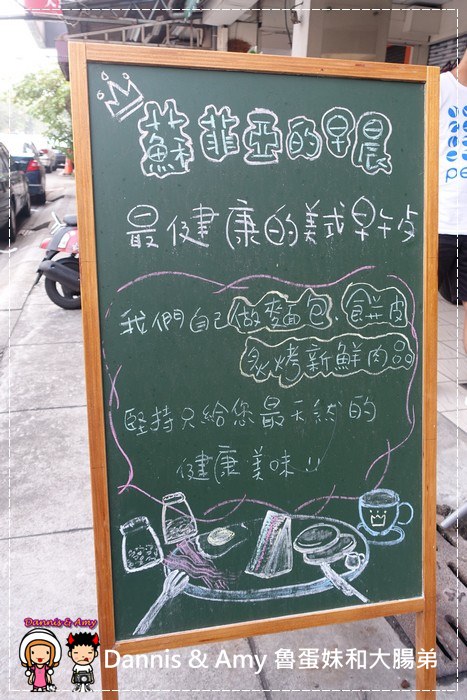 蘇菲亞的早晨
最健康的美式早午
我們自己做麵包、餅皮
炙烤新鮮肉品
堅持只給您最天然的
健康美味!!
pe
Dannis & Amy
Dannis & Amy 魯蛋妹和大腸弟